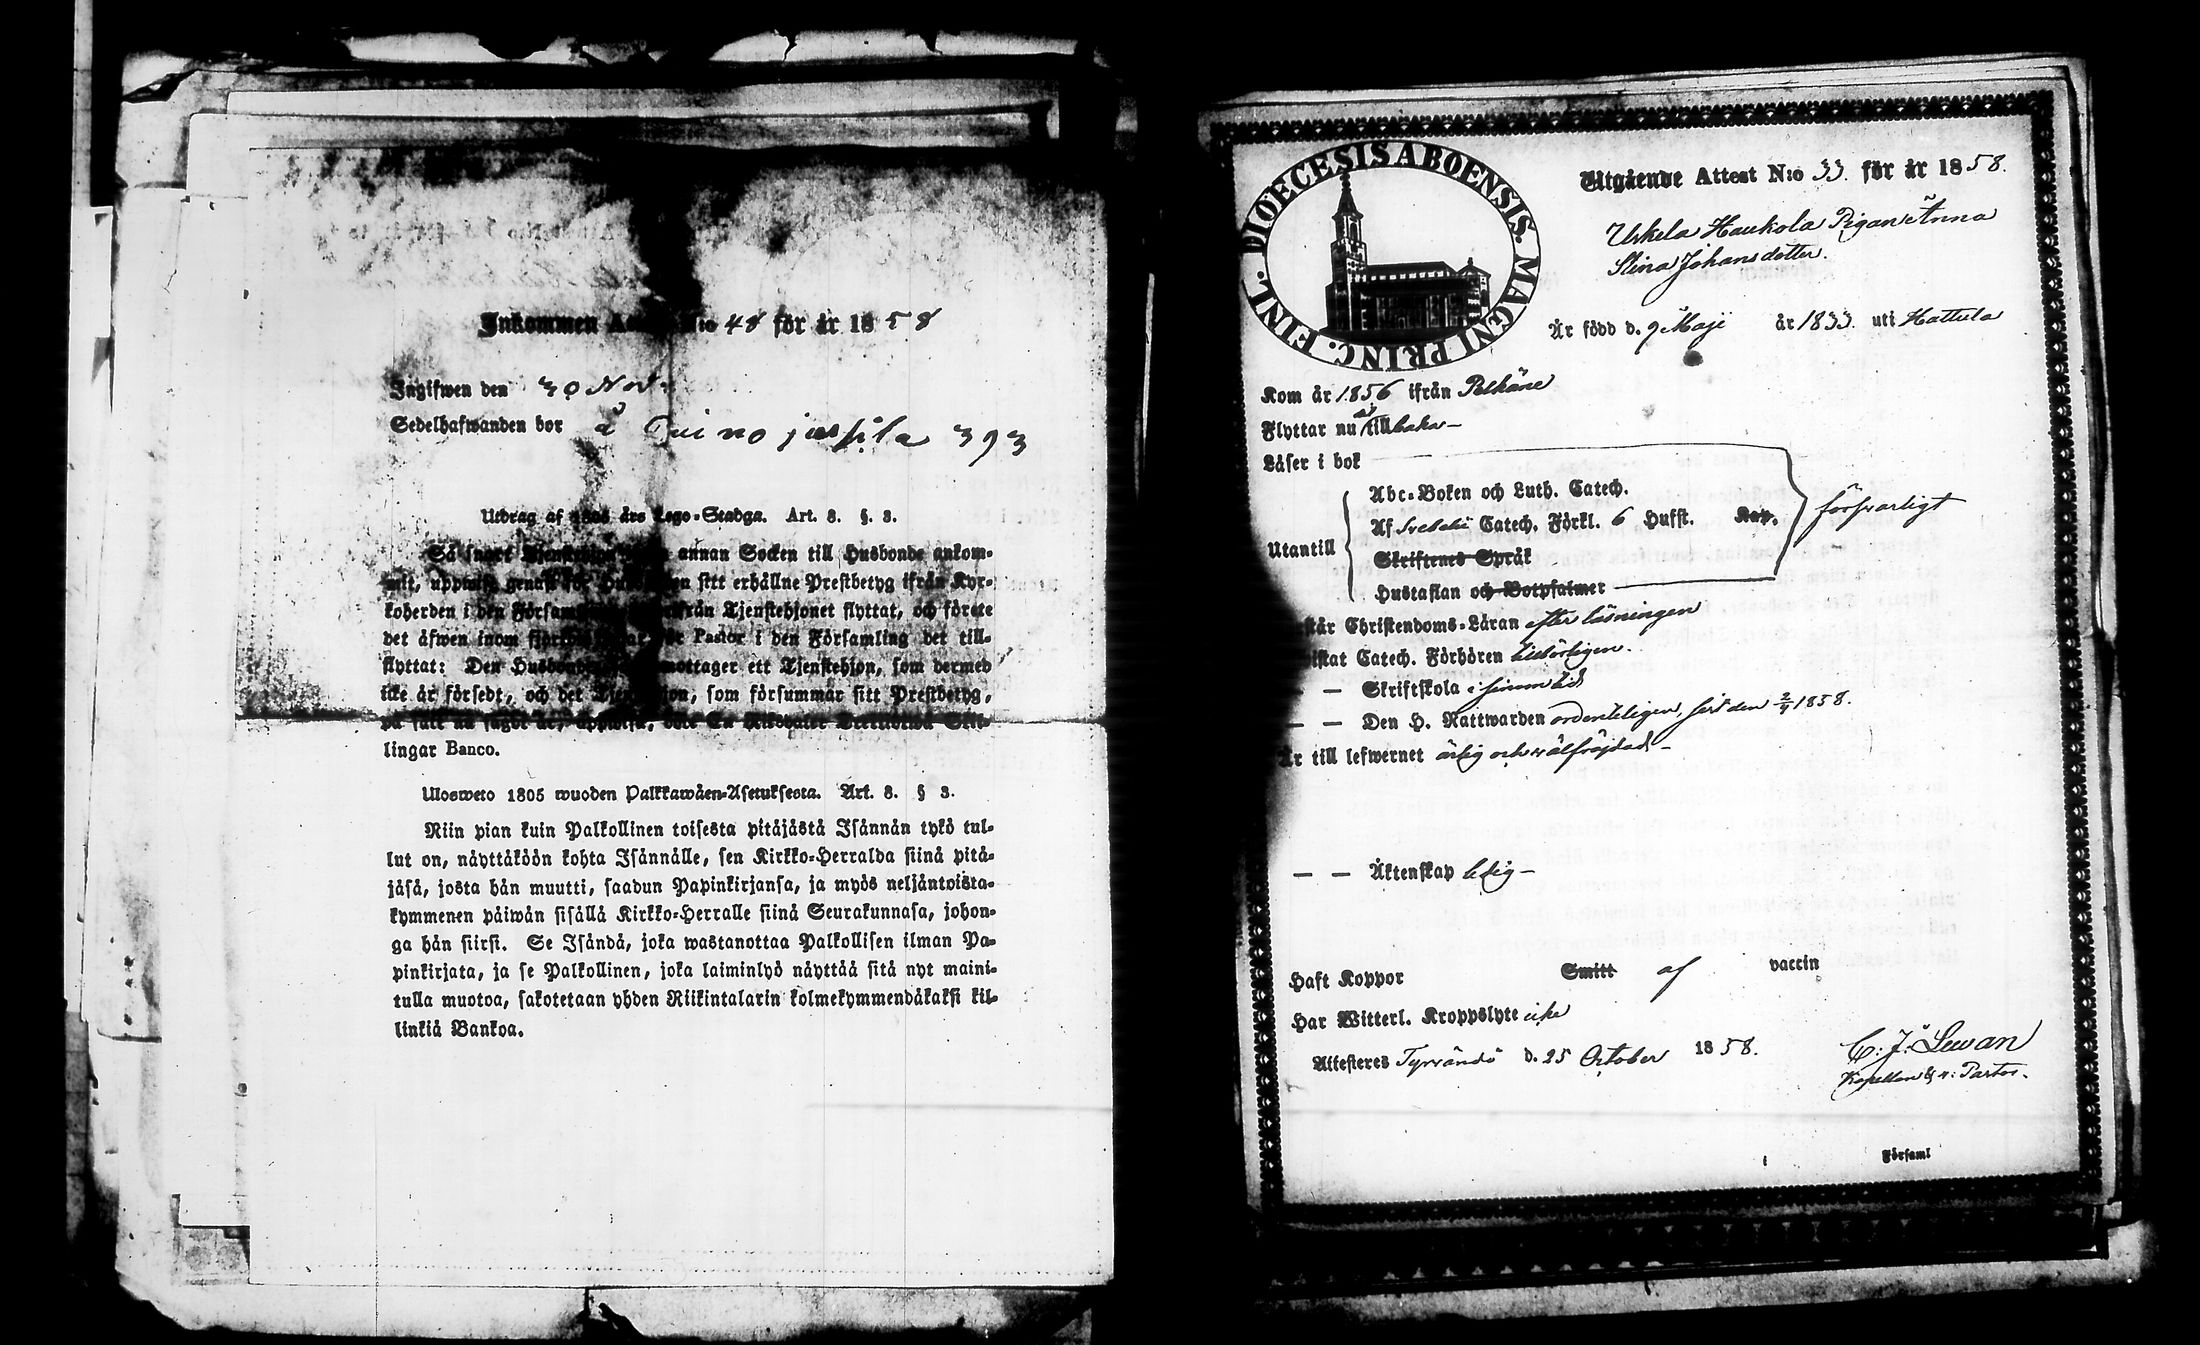 Inkommen N:o 48 för år 1858
Ingifwen den 30 Nov.
Sedelhafwanden bor å 393
Utdrag af 1805 års Lego-Stadga. Art. 8. §. 3.
Så snart annan Socken till Husbonde ankom-
mit, uppwise genast för sitt erhållne Prestbetyg ifrån Kyr-
koherden i den ifrån Tjenstehjonet flyttat, och förete
det äfwen inom Pastor i den Församling det till-
flyttat: Den mottager ett Tjenstehjon, som dermed
icke är försedt, och det som försummar sitt Prestbetyg,
på sätt nu sagdt är,
lingar Banco.
Ulosweto 1805 wuoden Palkkawäen-Asetuksesta. Art. 8. § 3.
Niin pian kuin Palkollinen toisesta pitäjästä Isännän tykö tul-
lut on, näyttäköön kohta Isännälle, sen Kirkko-Herralda siinä pitä-
jäsä, josta hän muutti, saadun Papinkirjansa, ja myös neljäntoista-
kymmenen päiwän sisällä Kirkko-Herralle siinä Seurakunnasa, johon-
ga hän siirsi. Se Isändä, joka wastanottaa Palkollisen ilman Pa-
pinkirjata, ja se Palkollinen, joka laiminlyö näyttää sitä nyt maini-
tulla muotoa, sakotetaan yhden Riikintalarin kolmekymmendäkaksi kil-
linkiä Bankoa.
DIOECESIS ABOENSIS. MAGNI PRINC. FINL.
Utgående Attest N:o 33. för år 1858.
Urkela Haukola Pigan Anna
Stina Johansdotter.
Är född d. 9 Maji år 1833. uti Hattula
Kom år 1856 ifrån Pelkäne
Flyttar nu tillbaka
Läser i bok
Abc-Boken och Luth. Catech.
Af Svebelii Catech. Förkl. 6 Hufst. Kap. försvarligt
Utantill
Skriftenes Språk
Hustaflan och Botpsalmer
Christendoms-Läran efter läsningen
Catech. Förhören behörligen.
— — Skriftskola i sinom tid
— — Den H. Nattwarden ordenteligen, sist den 2/9 1858.
Är till lefwernet ärlig och wälfräjdad
— — Äktenskap ledig
Haft Koppor Smitt af vaccin
Har Witterl. Kroppslyte icke
Attesteres Tyrvändö d. 25 October 1858.
C. J. Lewan
Kapellan & v: Pastor.
Församl